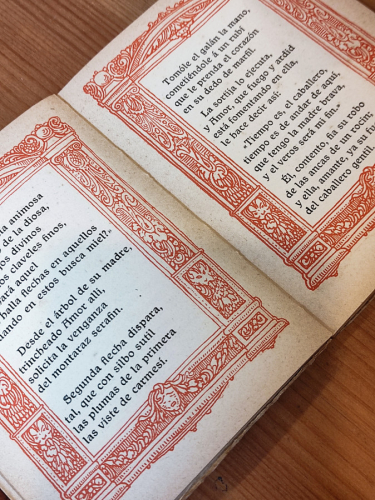 animosa
de la diosa,
divinos
claveles finos,
aquel
halla flechas en aquellos
en estos busca miel?.
Desde el árbol de su madre,
trincheado Amor allí,
solicita la venganza
del montaraz serafín.
Segunda flecha dispara,
tal, que con silbo sutil
las plumas de la primera
las viste de carmesí.
Tomóle el galán la mano,
cometiéndole á un rubí
que le prenda el corazón
en su dedo de marfil.
La sortija lo ejecuta,
y Amor, que fuego y ardid
está fomentando en ella,
le hace decir así:
«Tiempo es el caballero,
tiempo es de andar de aquí,
que tengo la madre brava,
y el veros será mi fin.»
Él, contento, fía su robo
de las ancas de un rocín;
y ella, amante, ya su fu
del caballero gentil.